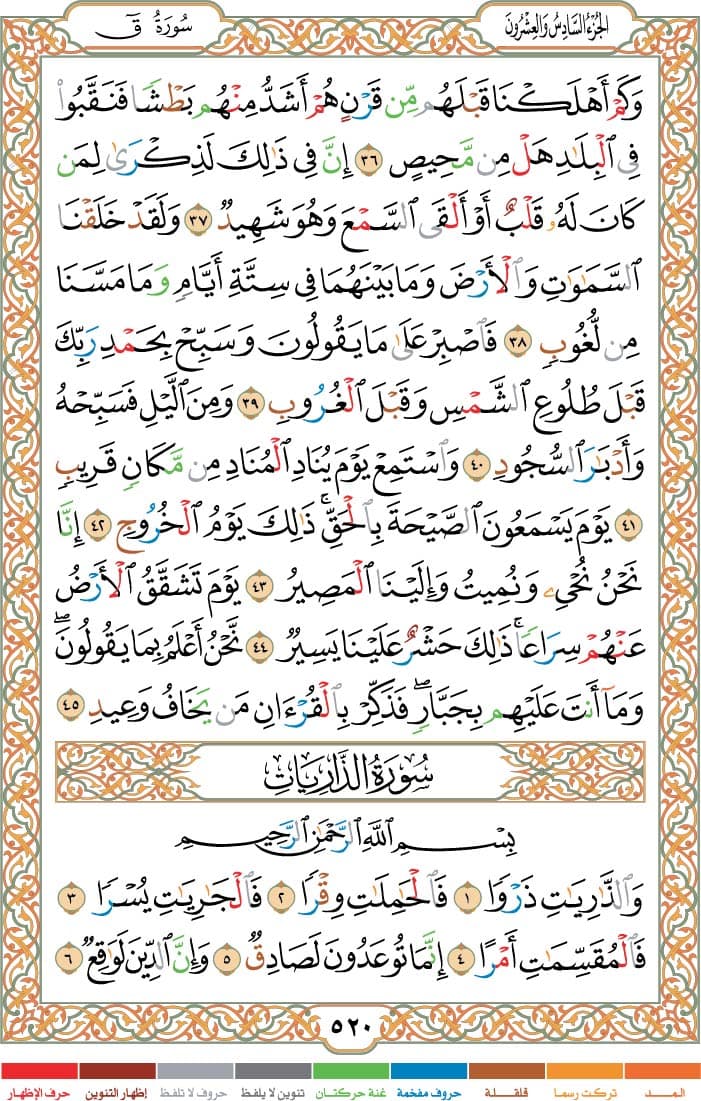 الجُزءُ السَّادِسُ وَالعِشْرُونَ
سُورَةُ قٓ
وَكَمْ أَهْلَكْنَا قَبْلَهُم مِّن قَرْنٍ هُمْ أَشَدُّ مِنْهُم بَطْشًا فَنَقَّبُوا۟
فِى ٱلْبِلَٰدِ هَلْ مِن مَّحِيصٍ ٣٦ إِنَّ فِى ذَٰلِكَ لَذِكْرَىٰ لِمَن
كَانَ لَهُۥ قَلْبٌ أَوْ أَلْقَى ٱلسَّمْعَ وَهُوَ شَهِيدٌ ٣٧ وَلَقَدْ خَلَقْنَا
ٱلسَّمَٰوَٰتِ وَٱلْأَرْضَ وَمَا بَيْنَهُمَا فِى سِتَّةِ أَيَّامٍ وَمَا مَسَّنَا
مِن لُّغُوبٍ ٣٨ فَٱصْبِرْ عَلَىٰ مَا يَقُولُونَ وَسَبِّحْ بِحَمْدِ رَبِّكَ
قَبْلَ طُلُوعِ ٱلشَّمْسِ وَقَبْلَ ٱلْغُرُوبِ ٣٩ وَمِنَ ٱلَّيْلِ فَسَبِّحْهُ
وَأَدْبَٰرَ ٱلسُّجُودِ ٤٠ وَٱسْتَمِعْ يَوْمَ يُنَادِ ٱلْمُنَادِ مِن مَّكَانٍ قَرِيبٍ
٤١ يَوْمَ يَسْمَعُونَ ٱلصَّيْحَةَ بِٱلْحَقِّ ۚ ذَٰلِكَ يَوْمُ ٱلْخُرُوجِ ٤٢ إِنَّا
نَحْنُ نُحْىِۦ وَنُمِيتُ وَإِلَيْنَا ٱلْمَصِيرُ ٤٣ يَوْمَ تَشَقَّقُ ٱلْأَرْضُ
عَنْهُمْ سِرَاعًا ۚ ذَٰلِكَ حَشْرٌ عَلَيْنَا يَسِيرٌ ٤٤ نَّحْنُ أَعْلَمُ بِمَا يَقُولُونَ ۖ
وَمَآ أَنتَ عَلَيْهِم بِجَبَّارٍ ۖ فَذَكِّرْ بِٱلْقُرْءَانِ مَن يَخَافُ وَعِيدِ ٤٥
سُورَةُ الذَّارِيَات
بِسْمِ ٱللَّهِ ٱلرَّحْمَٰنِ ٱلرَّحِيمِ
وَٱلذَّٰرِيَٰتِ ذَرْوًا ١ فَٱلْحَٰمِلَٰتِ وِقْرًا ٢ فَٱلْجَٰرِيَٰتِ يُسْرًا ٣
فَٱلْمُقَسِّمَٰتِ أَمْرًا ٤ إِنَّمَا تُوعَدُونَ لَصَادِقٌ ٥ وَإِنَّ ٱلدِّينَ لَوَٰقِعٌ ٦
٥٢٠
المــد تركت رسما قلقلة حروف مفخمة غنة حركتان تنوين لا يلفظ حروف لا تلفظ إظهار التنوين حرف الإظهار